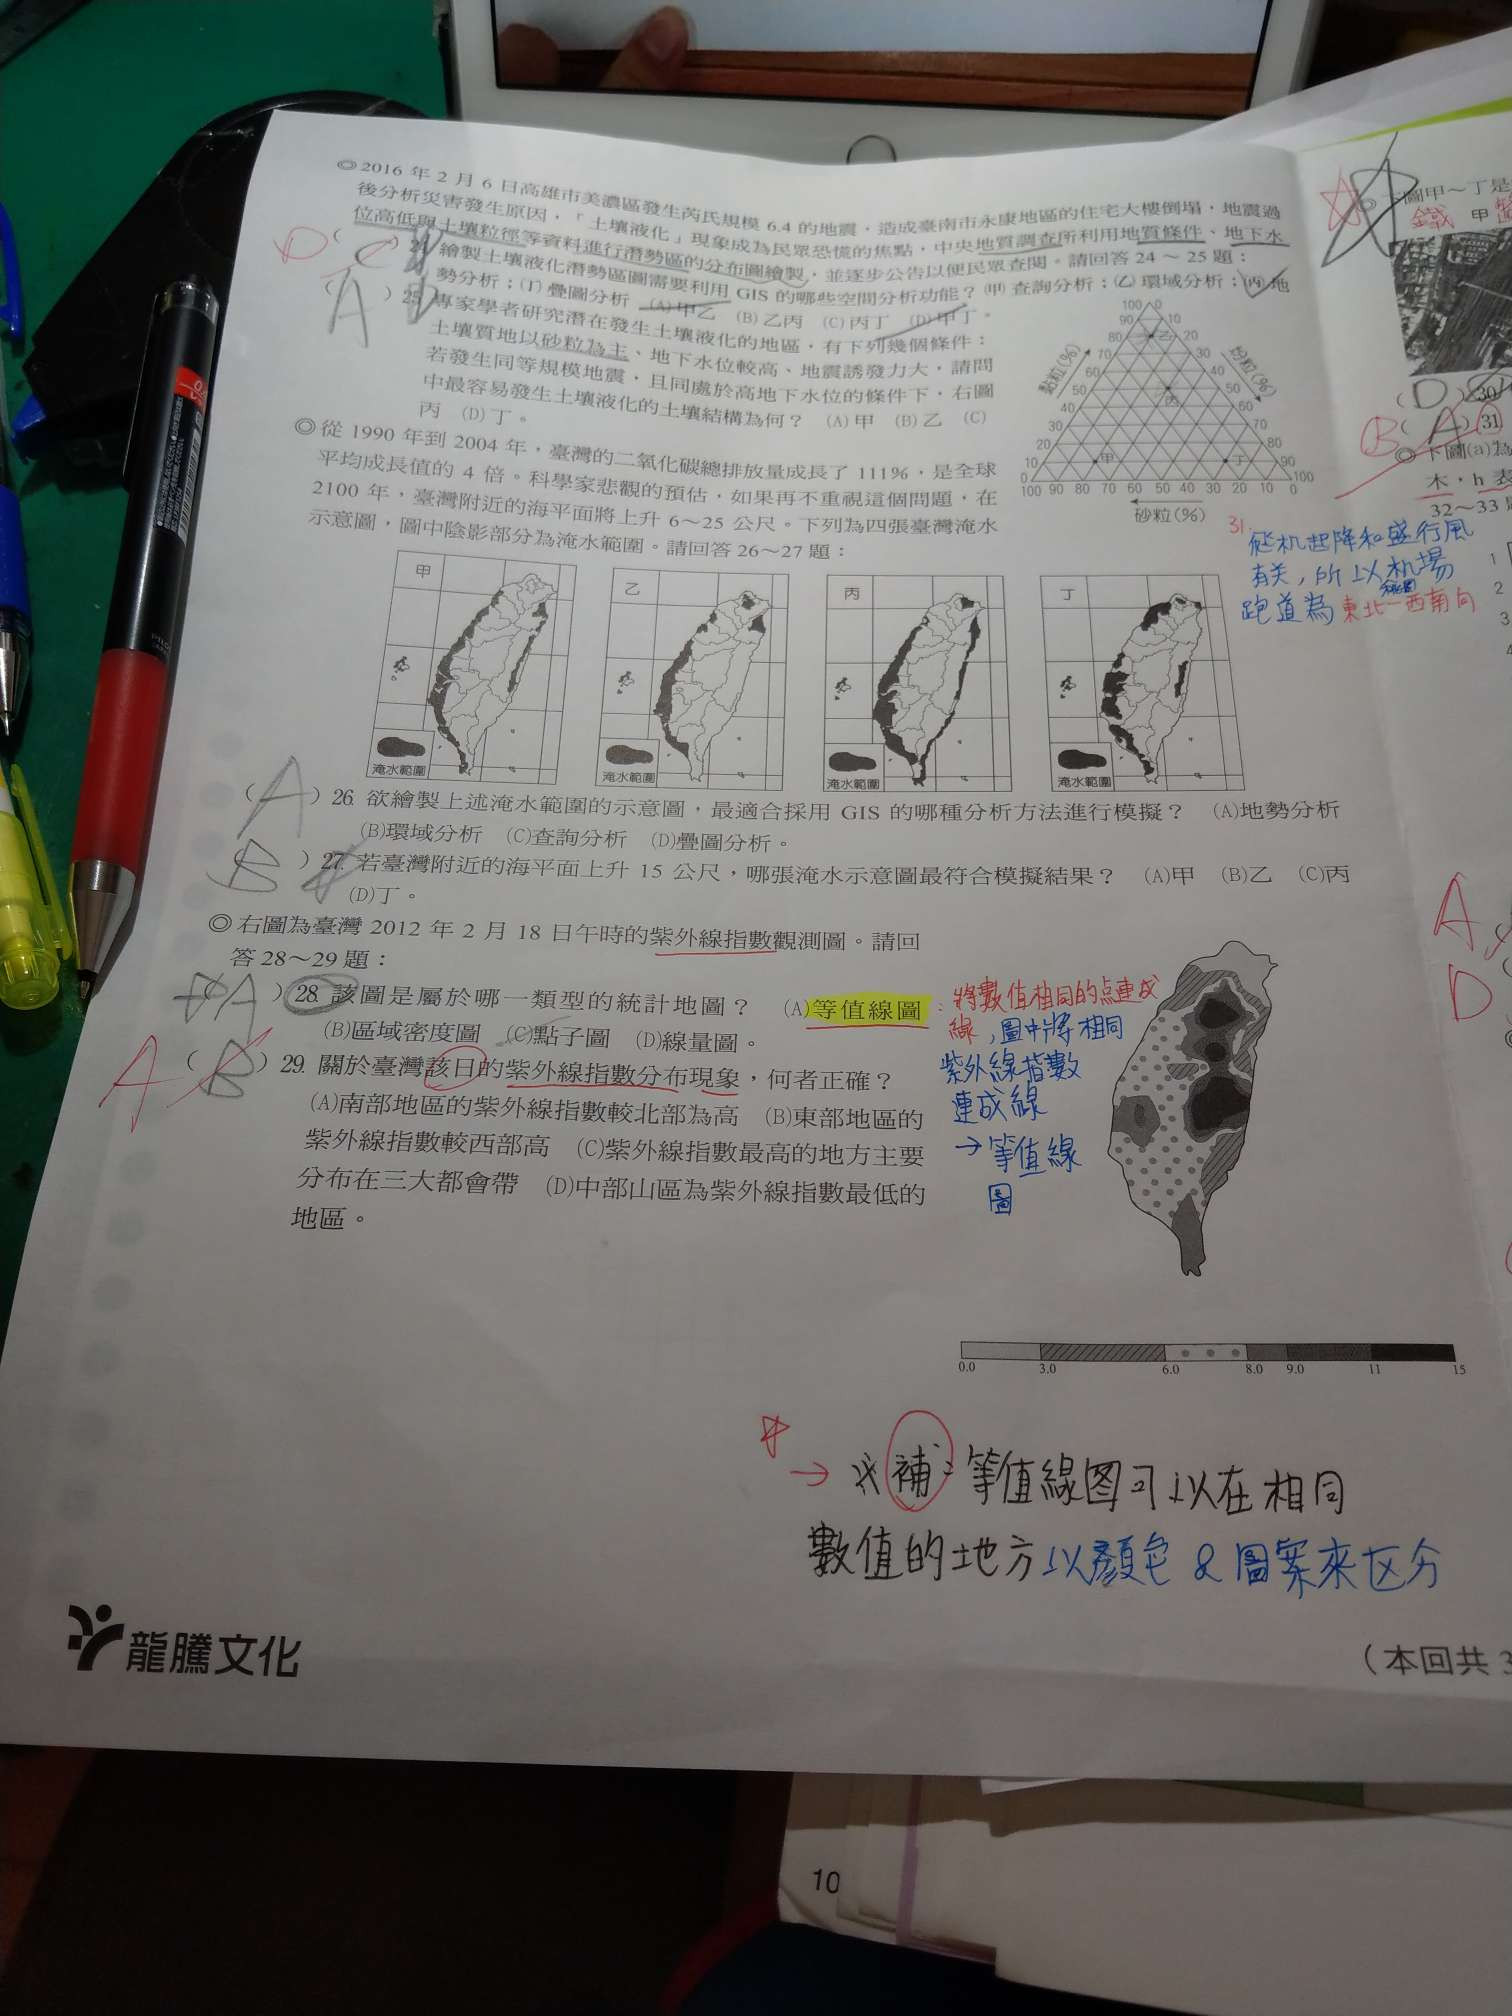 ◎2016 年 2 月 6 日高雄市美濃區發生芮氏規模 6.4 的地震，造成臺南市永康地區的住宅大樓倒塌，地震過
後分析災害發生原因，「土壤液化」現象成為民眾恐慌的焦點，中央地質調查所利用地質條件、地下水
位高低與土壤粒徑等資料進行潛勢區的分布圖繪製，並逐步公告以便民眾查閱。請回答 24 ～ 25 題：
D ( C ) 24. 繪製土壤液化潛勢區圖需要利用 GIS 的哪些空間分析功能？(甲)查詢分析；(乙)環域分析；(丙)地
勢分析；(丁)疊圖分析 (A)甲乙 (B)乙丙 (C)丙丁 (D)甲丁。
( A ) 25. 專家學者研究潛在發生土壤液化的地區，有下列幾個條件：
土壤質地以砂粒為主、地下水位較高、地震誘發力大，請問
若發生同等規模地震，且同處於高地下水位的條件下，右圖
中最容易發生土壤液化的土壤結構為何？ (A)甲 (B)乙 (C)
丙 (D)丁。
100 0
90 10
80 乙 20
70 30
60 40
50 丙 50
40 60
30 70
20 80
10 甲 丁 90
0 100
100 90 80 70 60 50 40 30 20 10 0
黏粒(%)
坋粒(%)
砂粒(%)
◎從 1990 年到 2004 年，臺灣的二氧化碳總排放量成長了 111%，是全球
平均成長值的 4 倍。科學家悲觀的預估，如果再不重視這個問題，在
2100 年，臺灣附近的海平面將上升 6～25 公尺。下列為四張臺灣淹水
示意圖，圖中陰影部分為淹水範圍。請回答 26～27 題：
甲 乙 丙 丁
淹水範圍 淹水範圍 淹水範圍 淹水範圍
( A ) 26. 欲繪製上述淹水範圍的示意圖，最適合採用 GIS 的哪種分析方法進行模擬？ (A)地勢分析
(B)環域分析 (C)查詢分析 (D)疊圖分析。
( B ) 27. 若臺灣附近的海平面上升 15 公尺，哪張淹水示意圖最符合模擬結果？ (A)甲 (B)乙 (C)丙
(D)丁。
◎右圖為臺灣 2012 年 2 月 18 日午時的紫外線指數觀測圖。請回
答 28～29 題：
( A ) 28. 該圖是屬於哪一類型的統計地圖？ (A)等值線圖
(B)區域密度圖 (C)點子圖 (D)線量圖。
A ( B ) 29. 關於臺灣該日的紫外線指數分布現象，何者正確？
(A)南部地區的紫外線指數較北部為高 (B)東部地區的
紫外線指數較西部高 (C)紫外線指數最高的地方主要
分布在三大都會帶 (D)中部山區為紫外線指數最低的
地區。
：將數值相同的点連成
線，圖中將相同
紫外線指數
連成線
→等值線
圖
0.0 3.0 6.0 8.0 9.0 11 15
→ 補：等值線图可以在相同
數值的地方以顏色 & 圖案來区分
龍騰文化
(本回共 3
31.
机起降和盛行風
有关，所以机場
跑道為東北－西南向
圖甲～丁是
鐵 甲
( D ) 30
B ( A ) 31
◎下圖(a)為
木，h 表
32～33
1
2
3
4
A
D
10